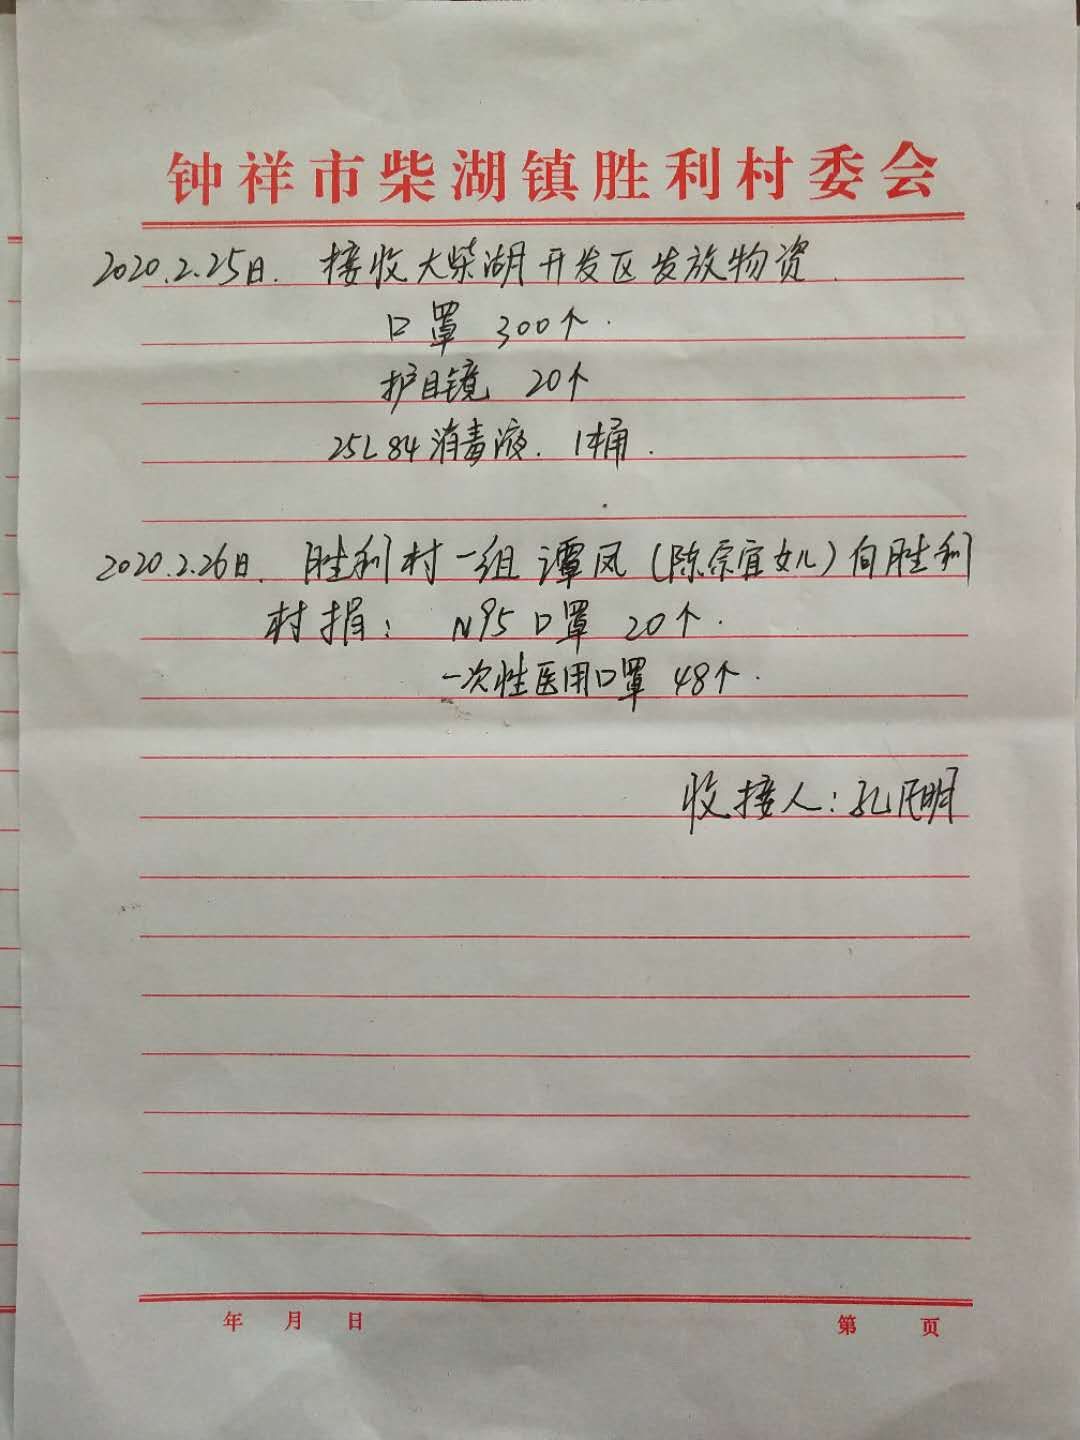 钟祥市柴湖镇胜利村委会
2020.2.25日. 接收大柴湖开发区发放物资.
口罩 300个.
护目镜 20个
25L84消毒液. 1桶.
2020.2.26日. 胜利村一组谭凤(陈宗宜女儿)向胜利
村捐: N95口罩 20个.
一次性医用口罩 48个.
收接人:孔凡明
年 月 日
第 页